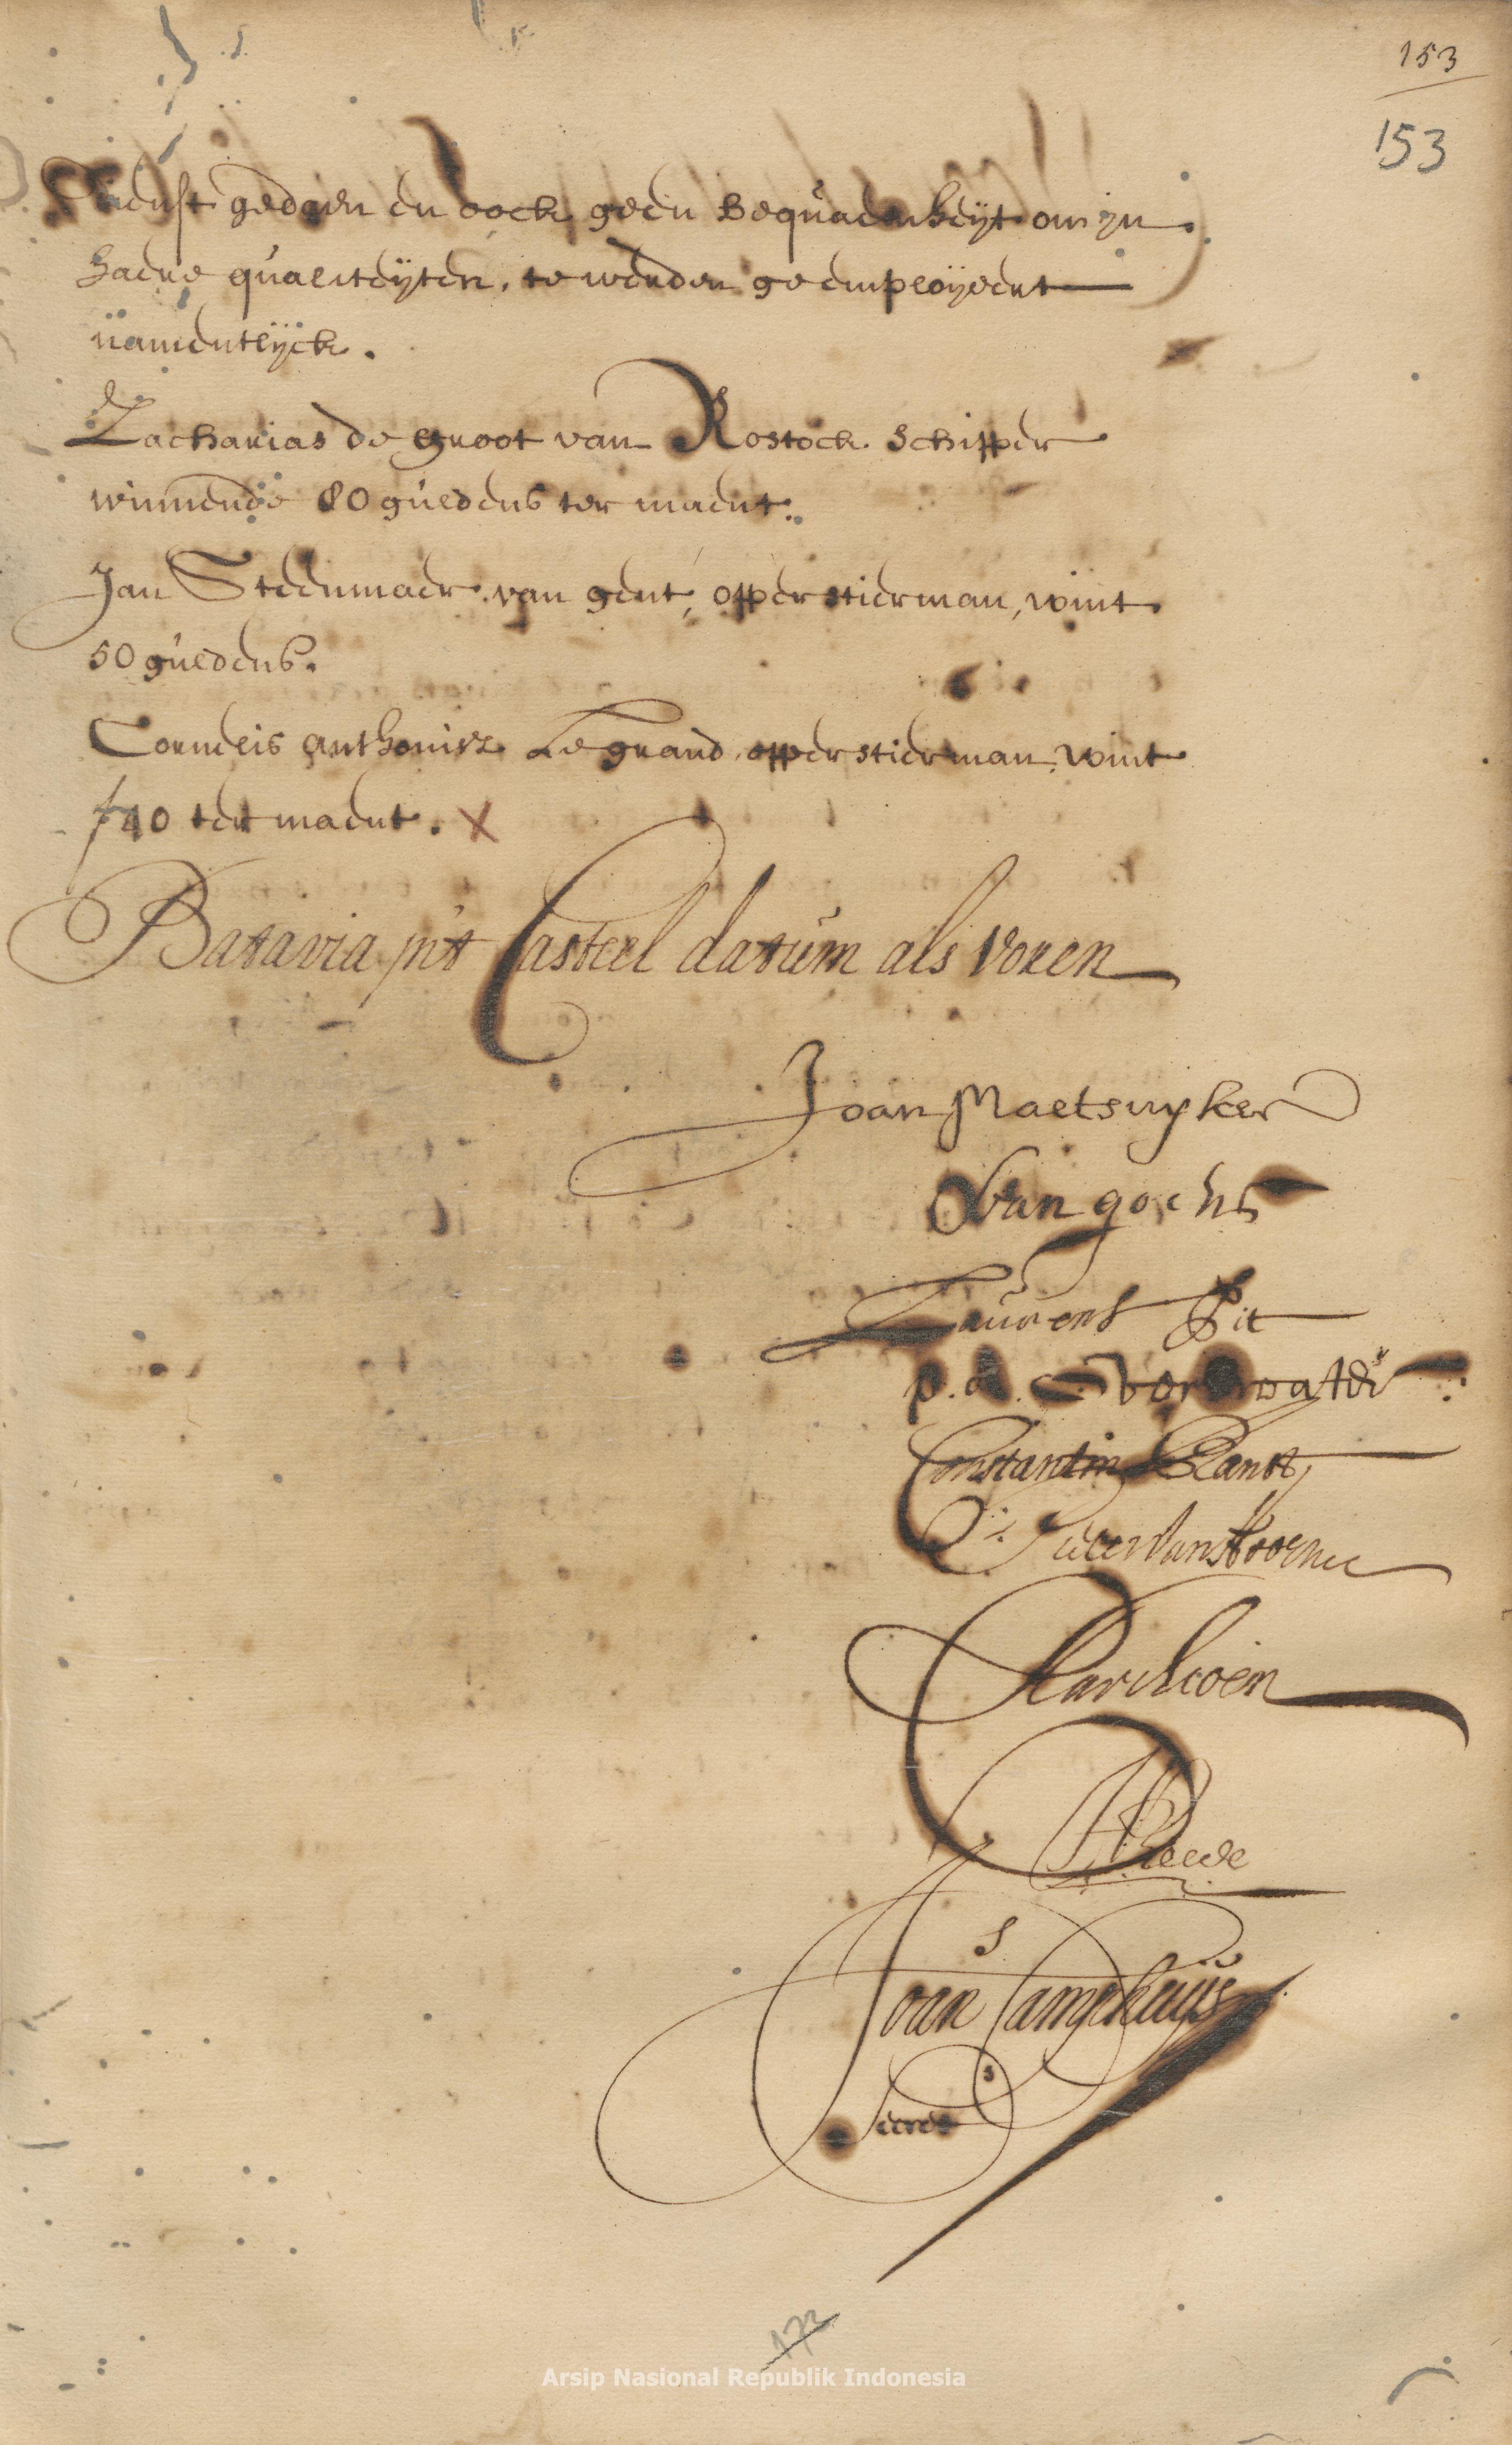 153
153
dienst gedaen en oock geen bequaemheyt om jn
haere qualiteyten, te werden geemployeert
namentlyck.
Zacharias de groot van Rostock schipper
winnende 80 guldens ter maent.
Jan Steenmaer van gent, opperstierman, wint
50 guldens.
Cornelis anthonisz Le grand opperstierman wint
f 40 ter maent. X
Batavia jn't Casteel datum als voren
Joan Maetsuyker
van goens
Laurens Pit
p. a.
Constantin Ranst
Pieter van Hoorne
s
Joan Camphuijs
s
Secret
173
Arsip Nasional Republik Indonesia